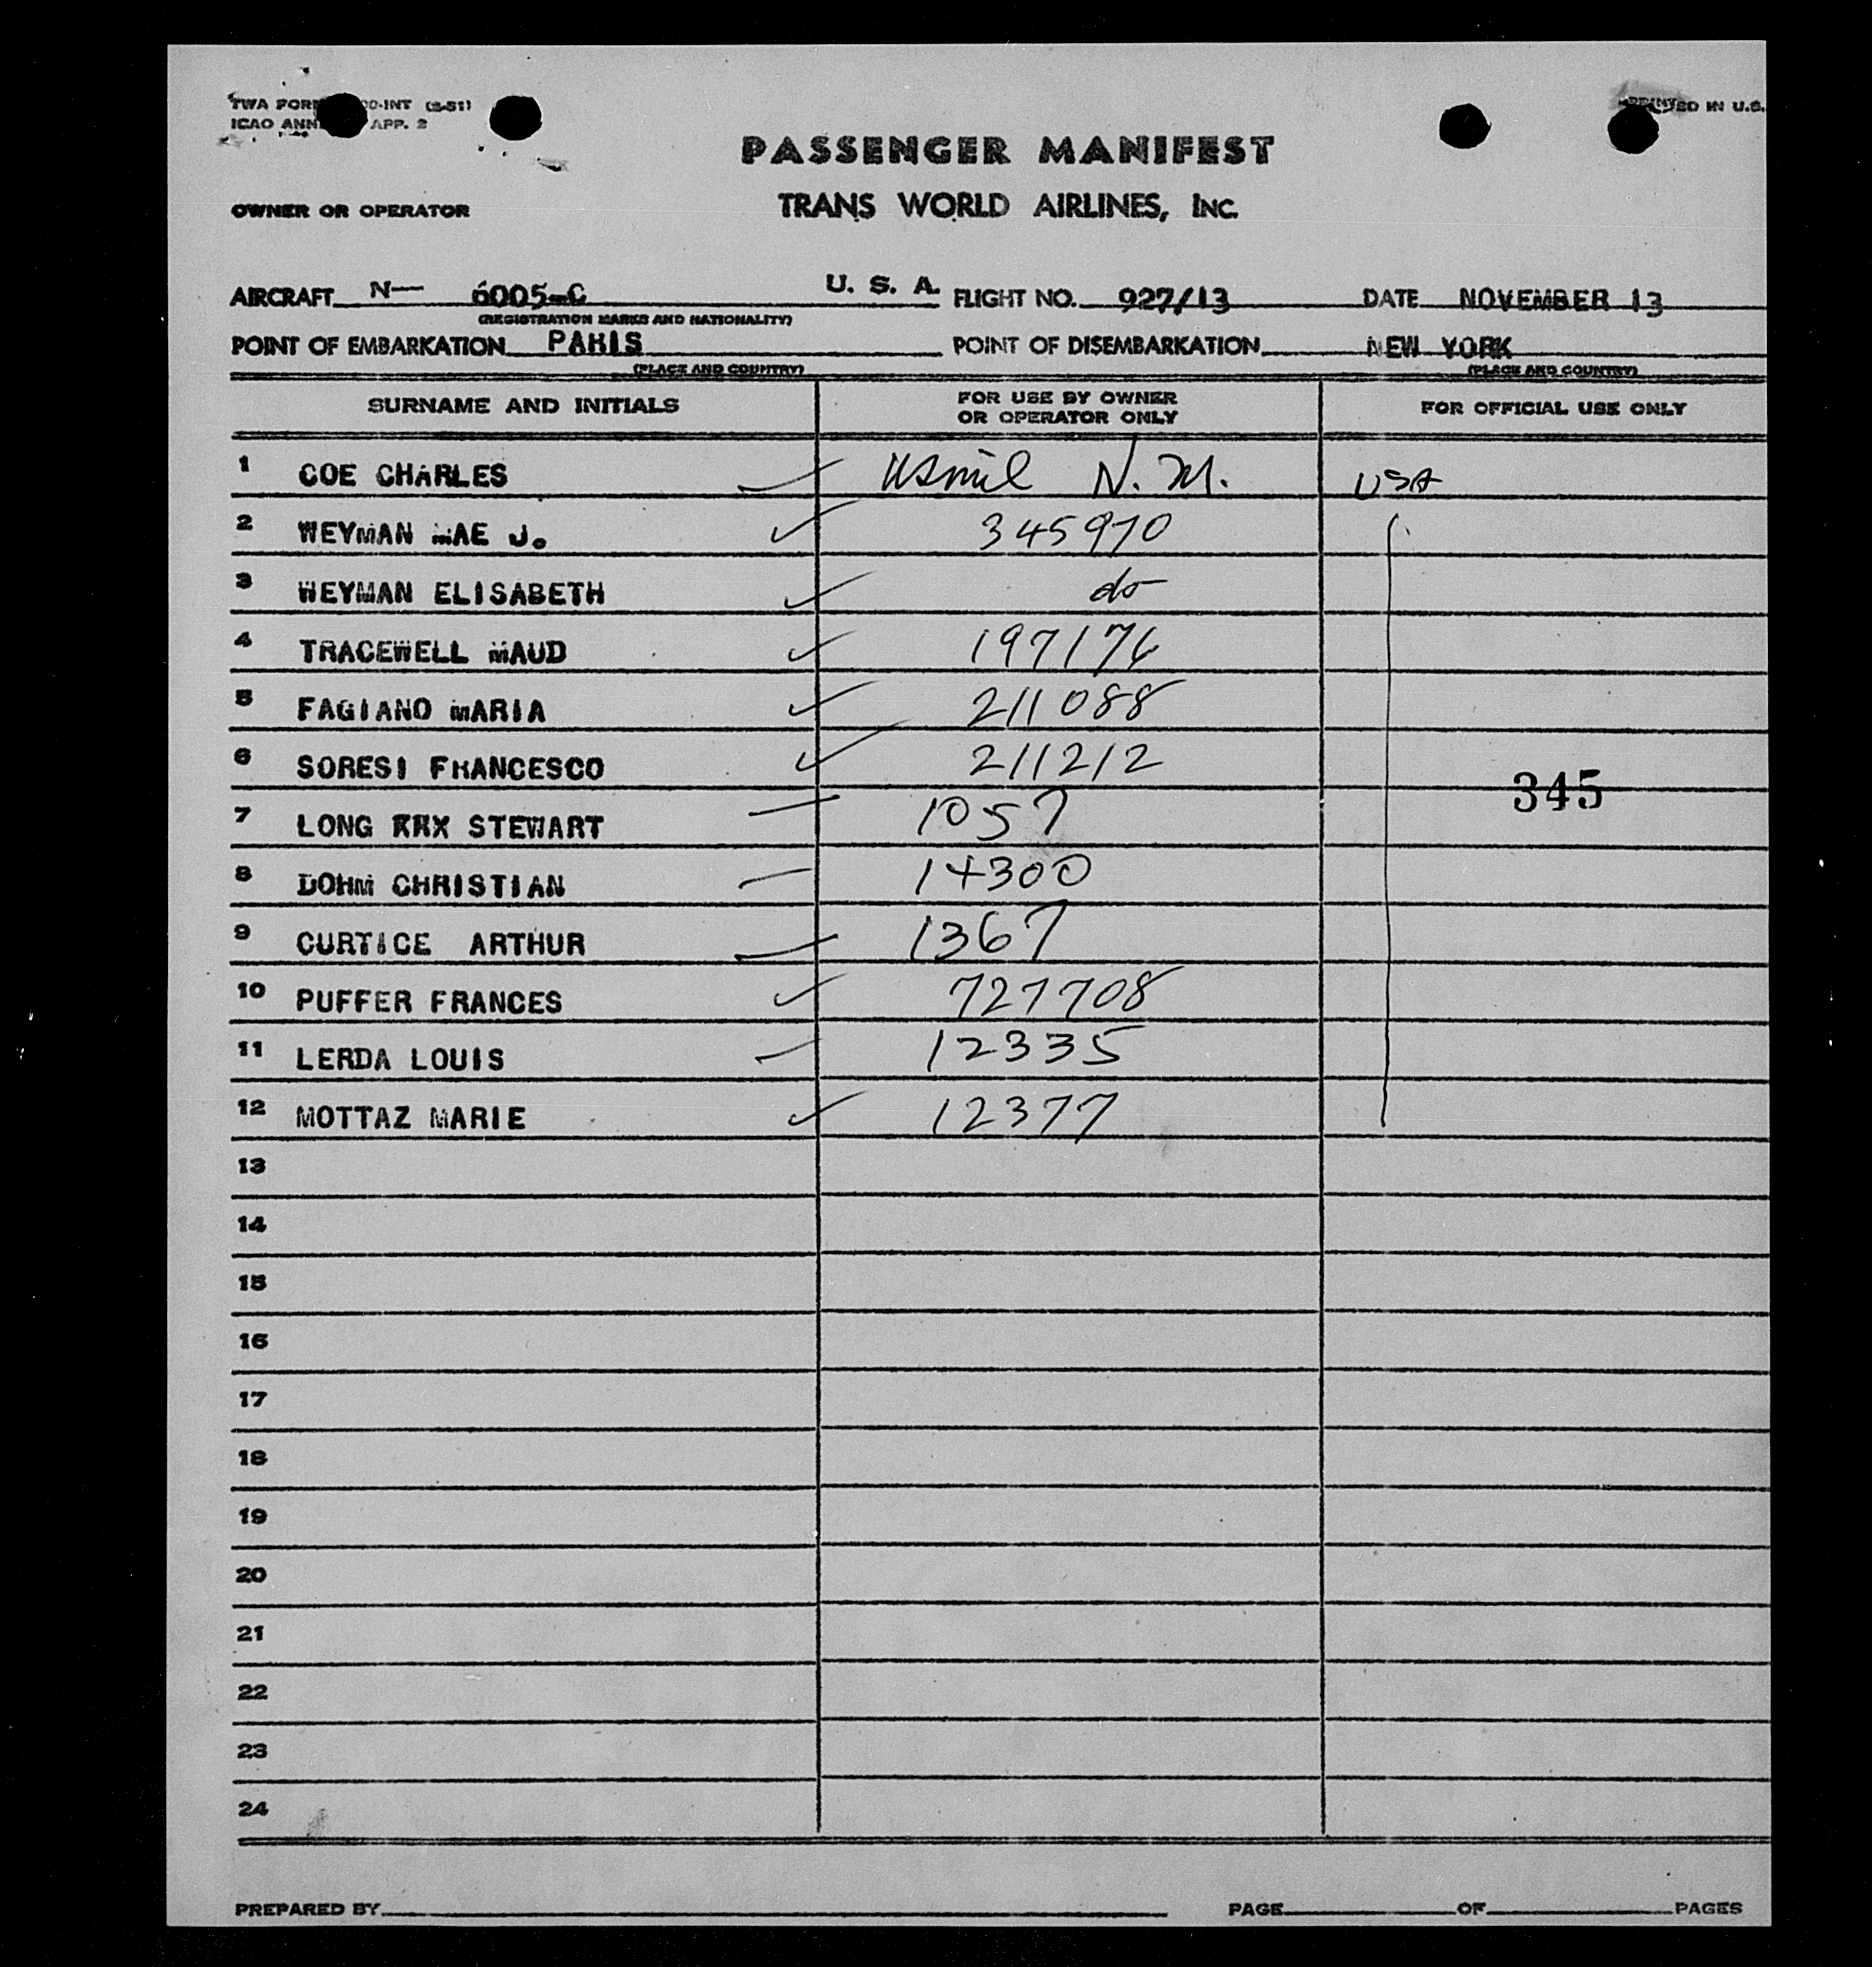 TWA FORM CO-INT (2-51)
ICAO ANNEX APP. 2
PRINTED IN U.S.
PASSENGER MANIFEST
OWNER OR OPERATOR TRANS WORLD AIRLINES, INC.
AIRCRAFT N— 6005-C U. S. A. FLIGHT NO. 927/13 DATE NOVEMBER 13
(REGISTRATION MARKS AND NATIONALITY)
POINT OF EMBARKATION PARIS POINT OF DISEMBARKATION NEW YORK
(PLACE AND COUNTRY) (PLACE AND COUNTRY)
SURNAME AND INITIALS FOR USE BY OWNER OR OPERATOR ONLY FOR OFFICIAL USE ONLY
1 COE CHARLES USmil N.M. USA
2 WEYMAN MAE J. 345970
3 WEYMAN ELISABETH do
4 TRACEWELL MAUD 197176
5 FAGIANO MARIA 211088
6 SORESI FRANCESCO 211212
345
7 LONG STEWART 1057
8 DOHM CHRISTIAN 14300
9 CURTICE ARTHUR 1367
10 PUFFER FRANCES 727708
11 LERDA LOUIS 12335
12 MOTTAZ MARIE 12377
13
14
15
16
17
18
19
20
21
22
23
24
PREPARED BY PAGE OF PAGES